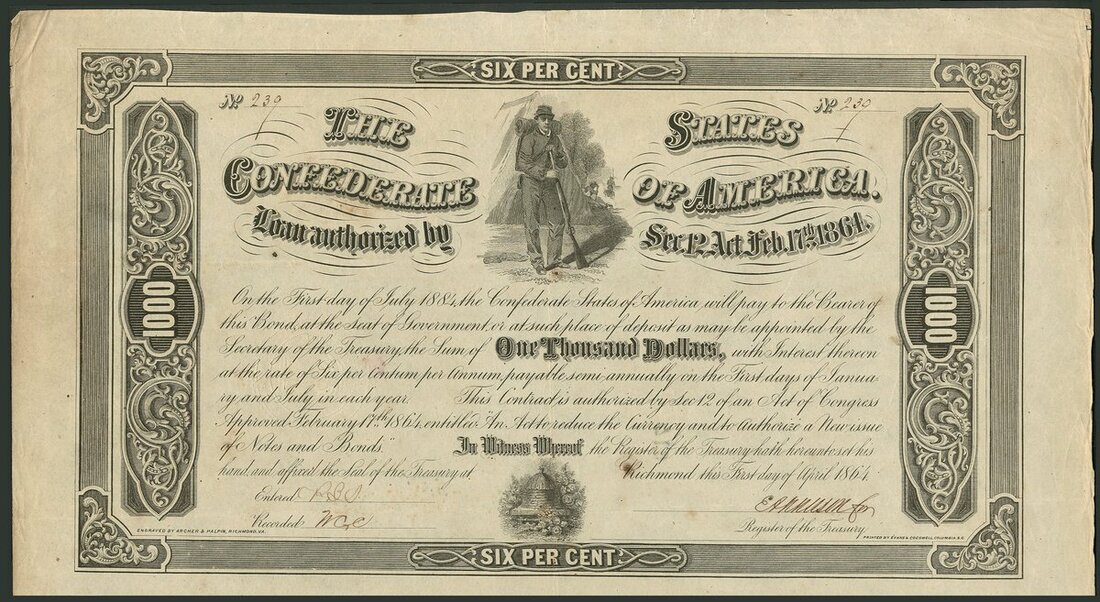 SIX PER CENT.
No 239
No 239
THE STATES
CONFEDERATE OF AMERICA.
Loan authorized by Sec. 12, Act Feb. 17th 1864.
1000
1000
On the First day of July 1884, the Confederate States of America, will pay to the Bearer of
this Bond, at the Seat of Government, or at such place of deposit as may be appointed by the
Secretary of the Treasury, the Sum of One Thousand Dollars, with Interest thereon
at the rate of Six per Centum per Annum, payable semi-annually on the First days of Janua-
ry and July in each year. This Contract is authorized by Sec 12 of an Act of Congress
Approved February 17th 1864, entitled "An Act to reduce the Currency and to authorize a New issue
of Notes and Bonds." In Witness Whereof the Register of the Treasury hath hereunto set his
hand, and affixed the Seal of the Treasury at Richmond this First day of April 1864.
Entered
Recorded
Register of the Treasury.
ENGRAVED BY ARCHER & HALPIN, RICHMOND, VA.
PRINTED BY EVANS & COGSWELL COLUMBIA, S.C.
SIX PER CENT.